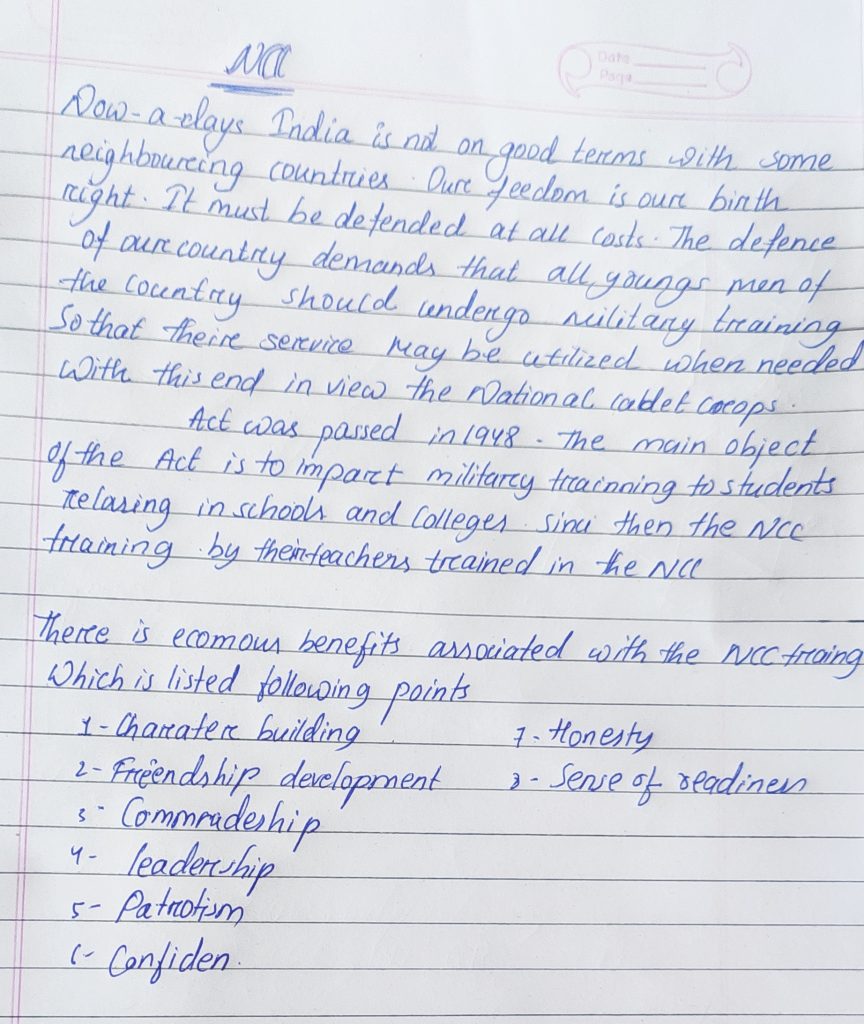 NCC
Date
Page
Now-a-days India is not on good terms with some
neighboureing countries. Oure feedom is oure birth
right. It must be defended at all costs. The defence
of oure country demands that all youngs men of
the country should undergo military treaining
So that theire serevice may be utilized when needed
With this end in view the National cadet corops.
Act was passed in 1948. The main object
of the Act is to imparet militarcy treainning to students
relasing in schools and Colleges. Since then the NCC
training by their teachers treained in the NCC
Theree is ecomous benefits associated with the NCC traing
Which is listed following points
1- Charratere building
7- Honesty
2- Freendship development
8- Sense of readiness
3- Commradeship
4- leadership
5- Patriotism
6- Confiden.